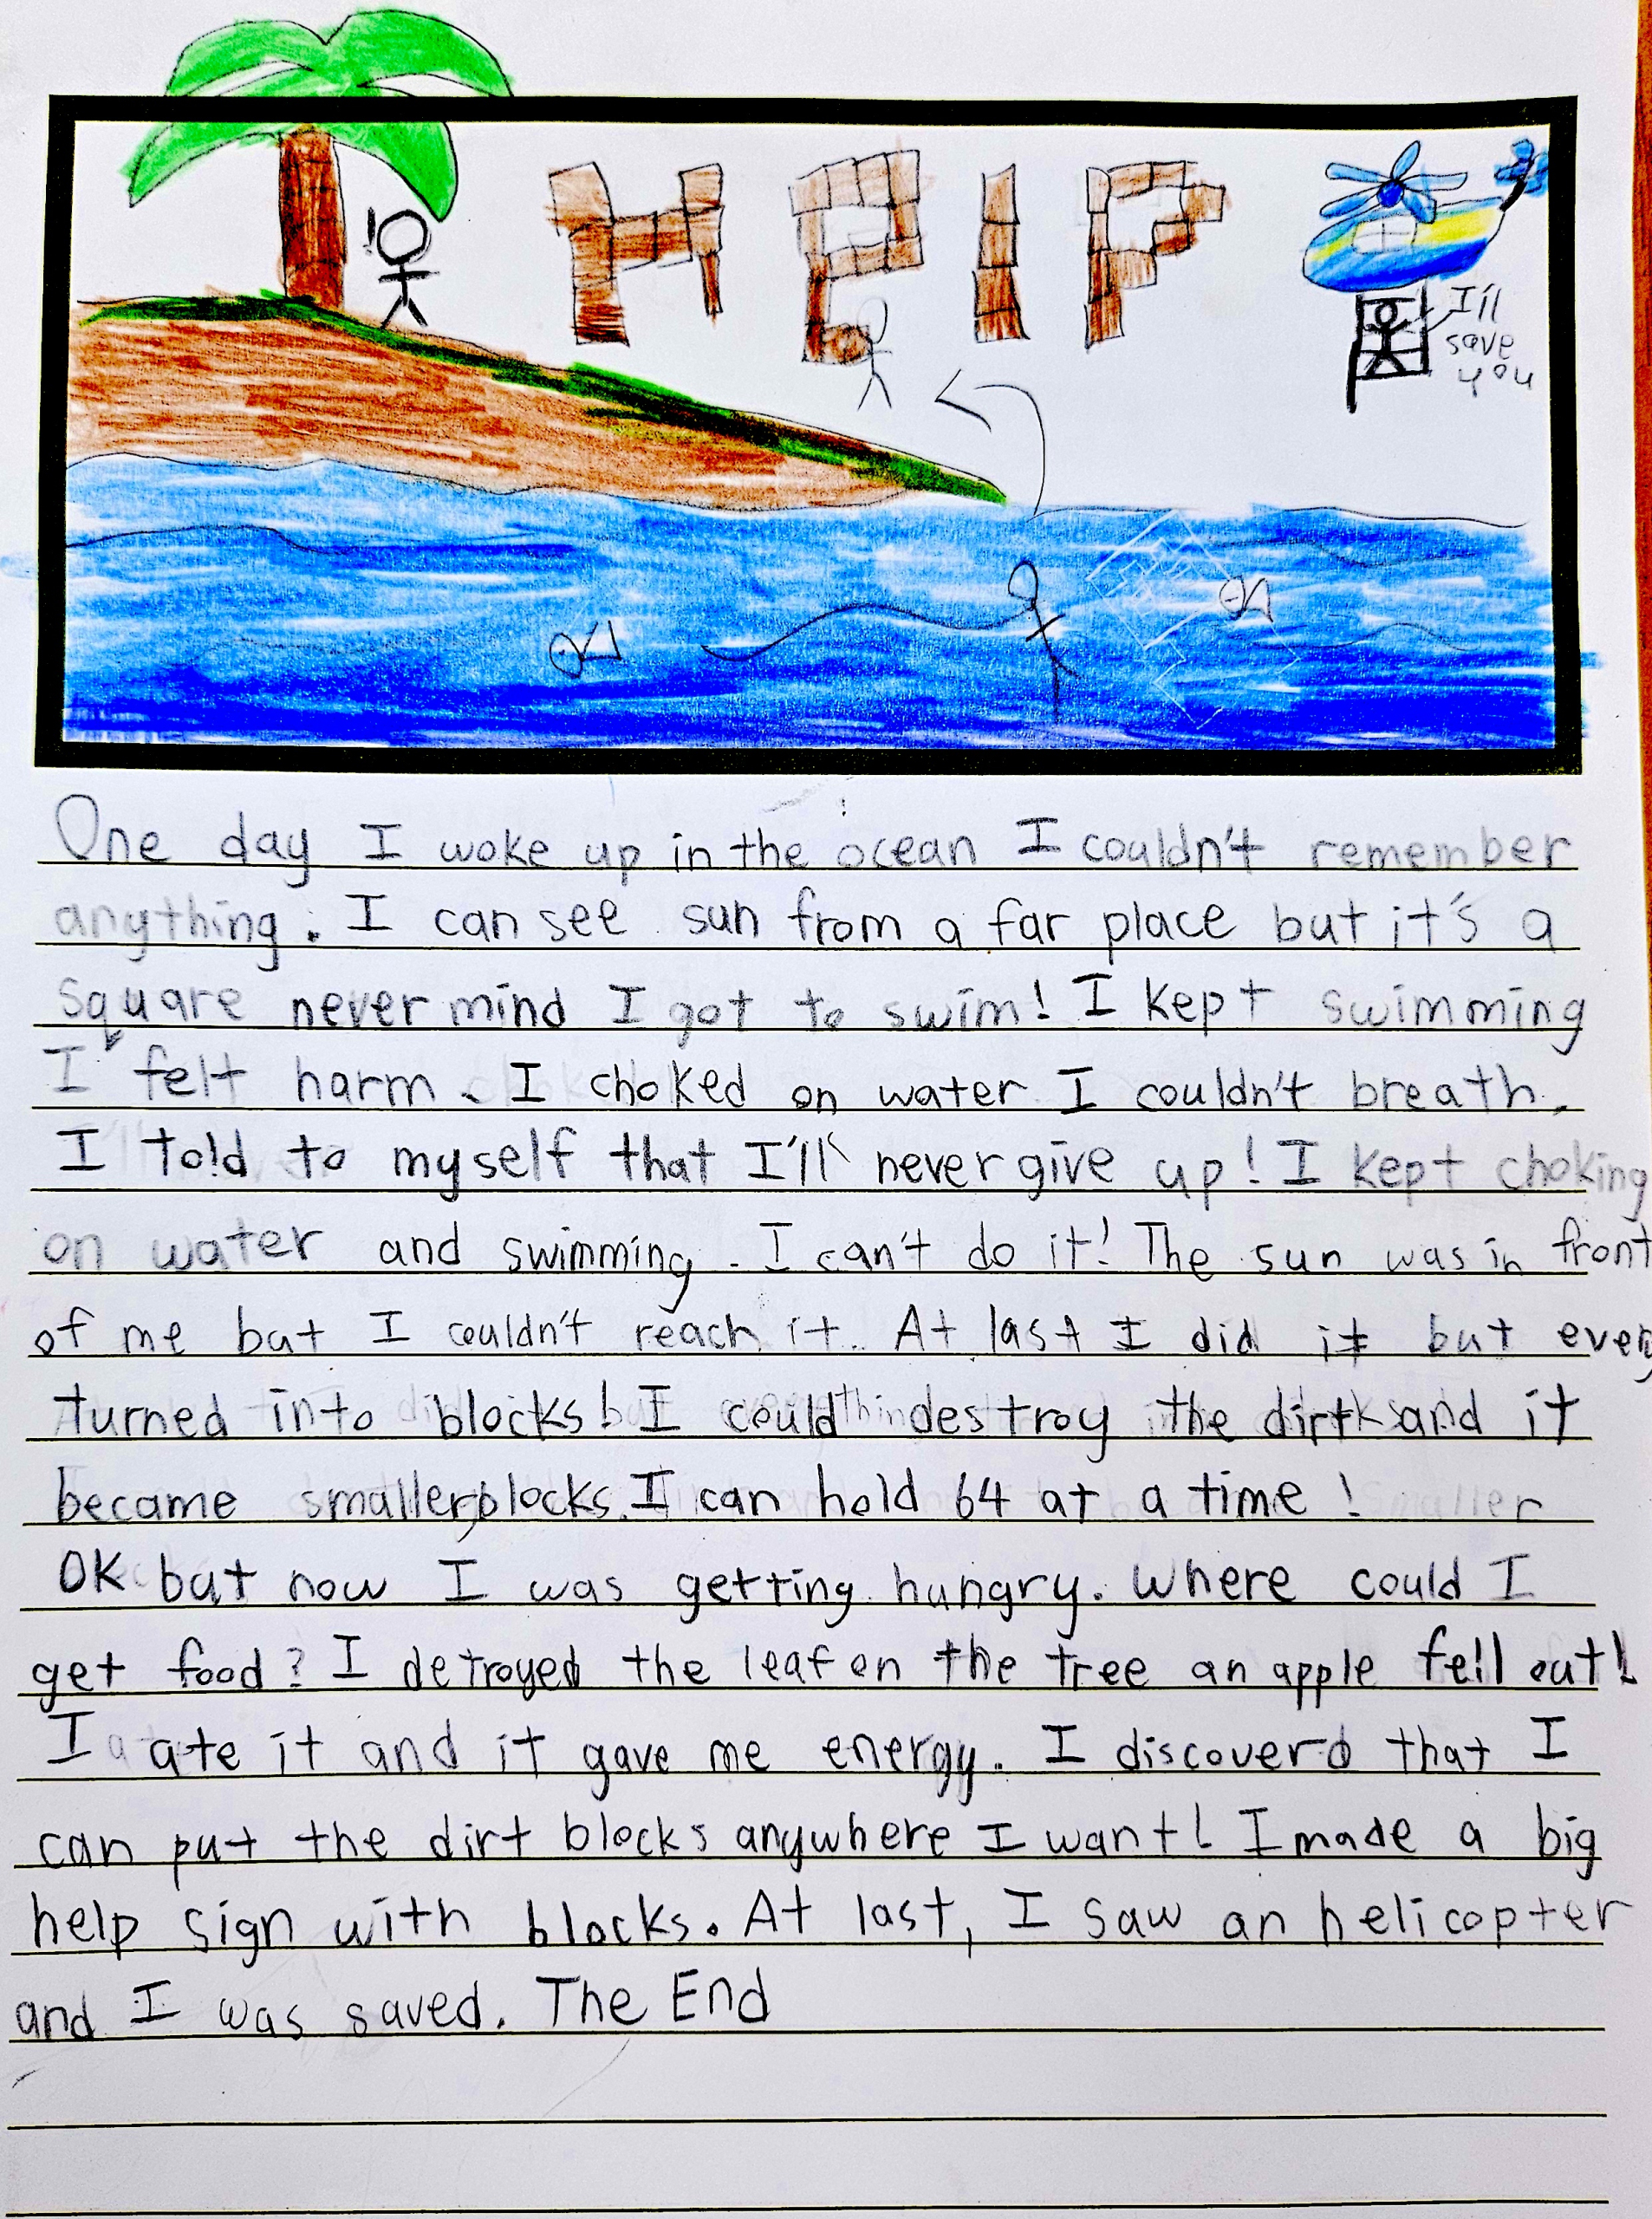 HElP
I'll
save
you
One day I woke up in the ocean I couldn't remember
anything. I can see sun from a far place but it's a
square never mind I got to swim! I kept swimming
I felt harm. I choked on water I couldn't breath.
I told to myself that I'll never give up! I kept choking
on water and swimming. I can't do it! The sun was in front
of me but I couldn't reach it. At last I did it but every
turned into blocks! I could destroy the dirt and it
became smaller blocks. I can hold 64 at a time!
OK but now I was getting hungry. Where could I
get food? I detroyed the leaf on the tree an apple fell out!
I ate it and it gave me energy. I discoverd that I
can put the dirt blocks anywhere I want! I made a big
help sign with blocks. At last, I saw an helicopter
and I was saved. The End